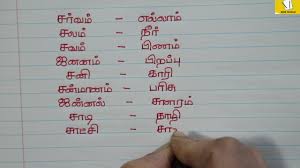 சர்வம் - எல்லாம்
சலம் - நீர்
சவம் - பிணம்
ஜனனம் - பிறப்பு
சனி - காரி
சன்மானம் - பரிசு
ஜன்னல் - சாளரம்
சாடி - தாழி
சாட்சி - சா